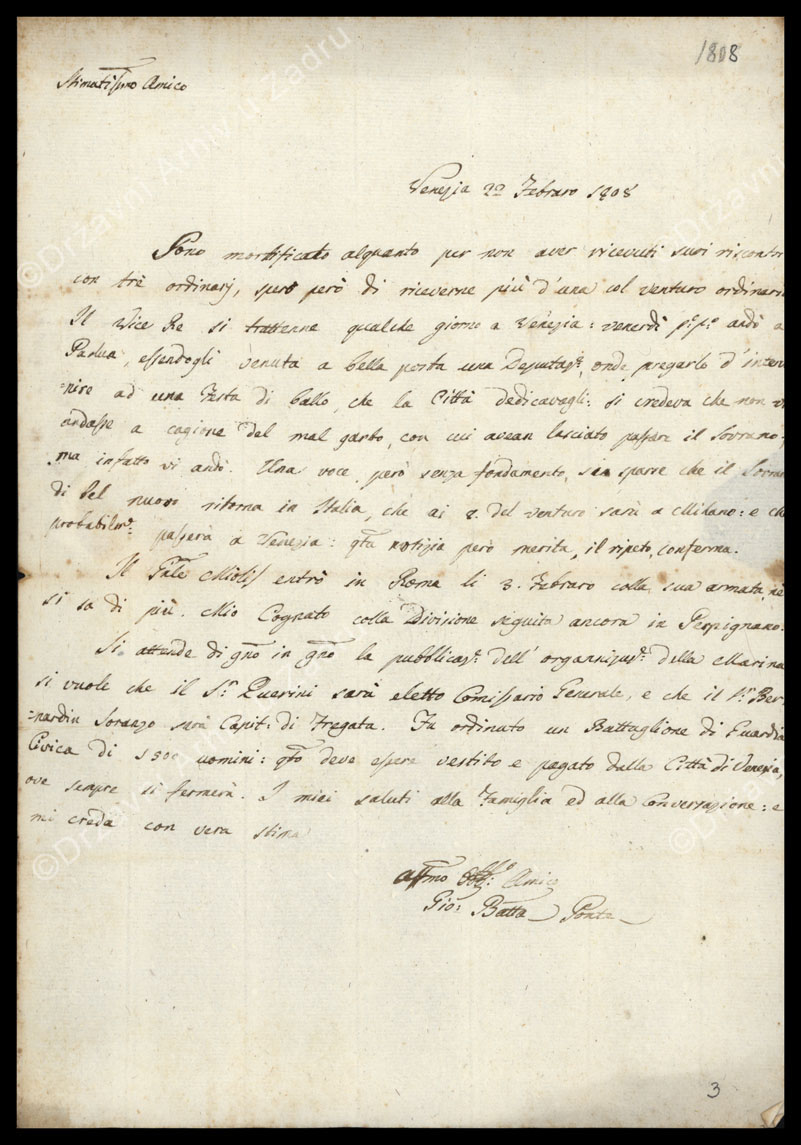 1808
Stimatissmo Amico
Venezia 22 Febraro 1808
Sono mortificato alquanto per non aver ricevuti suoi riscontri
con trè ordinarj, spero però di riceverne più d'una col venturo ordinari
Il Vice Re si trattenne qualche giorno a Venezia: venerdì pº: pº: andò a
Padua, essendogli venuta a bella posta una Deputaze:, onde pregarlo d'inter
=nire ad una Festa di ballo, che la Città dedicavagli: si credeva che non vi
andasse a cagione del mal garbo, con cui avean lasciato passare il Sovrano:
ma infatto vi andò. Una voce però senza fondamento, si sparse che il Sovran
di bel nuovo ritorna in Italia, che ai 2. del venturo sarà a Milano: e che
probabilme: passerà a Venezia: qta notizia però merita, il ripeto, conferma.
Il Gnle Miolis entrò in Roma li 3. Febraro colla sua armata, nè
si sa di più. Mio Cognato colla Divisione seguita ancora in Perpignano.
Si attende di gno in gno la pubblicaze: dell' organnizaze: della Marina
si vuole che il Sr: Querini sarà eletto Comissario Generale, e che il Sr: Ber-
=nardin Soranzo sarà Capit: di Fregata. Fu ordinato un Battaglione di Guardia
Civica di 1500 uomini: qto deve essere vestito e pagato dalla Città di Venezia,
ove sempre si fermerà. I miei saluti alla Famiglia ed alla Conversazione: e
mi creda con vera stima
affmo Obbo: Amico
Gio: Batta Ponte
3
©Državni Arhiv u Zadru